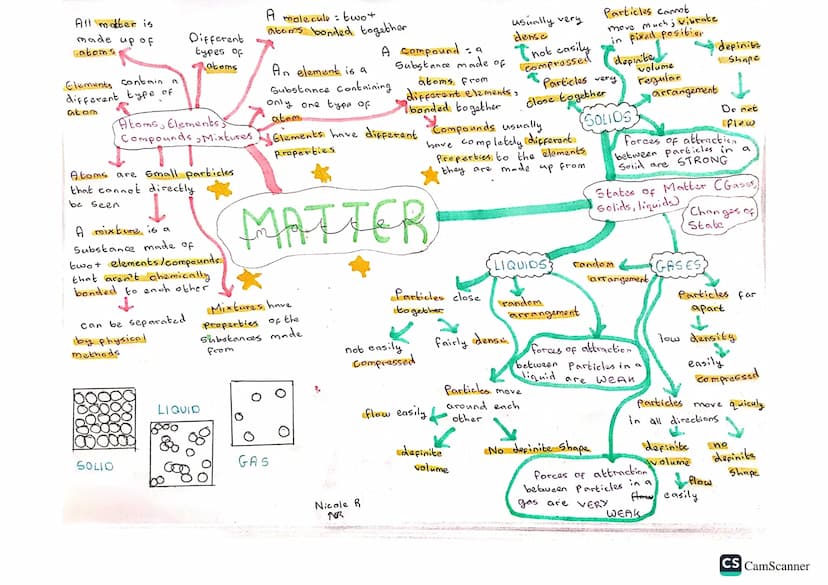 All matter is
made up of
atoms
Different
types of
atoms
A molecule = two+
atoms bonded together
Elements contain a
different type of
atom
An element is a
Substance containing
only one type of
atom
A compound = a
Substance made of
atoms from
different elements,
bonded together
Atoms, Elements,
Compounds, Mixtures
Elements have different
properties
Compounds usually
have completely different
Properties to the elements
they are made up from
Atoms are small particles
that cannot directly
be seen
A mixture is a
Substance made of
two+ elements/compounds
that aren't chemically
bonded to each other
can be separated
by physical
methods
Mixtures have
Properties of the
Substances made
from
MATTER
matter
usually very
dense
not easily
compressed
Particles very
close together
Particles cannot
move much; vibrate
in pixed position
definite
volume
regular
arrangement
definite
Shape
Do not
flow
SOLIDS
forces of attraction
between particles in a
Solid are STRONG
States of Matter (Gases,
solids, liquids)
Changes of
State
LIQUIDS
random
arrangement
GASES
Particles close
together
random
arrangement
not easily
compressed
fairly dense
forces of attraction
between Particles in a
liquid are WEAK
Particles move
around each
other
flow easily
definite
volume
No definite shape
Particles far
apart
low density
easily
compressed
Particles move quickly
in all directions
definite
volume
no
definite
Shape
flow
easily
forces of attraction
between Particles in a
gas are VERY
WEAK
SOLID
LIQUID
GAS
Nicole R
NR
CS CamScanner